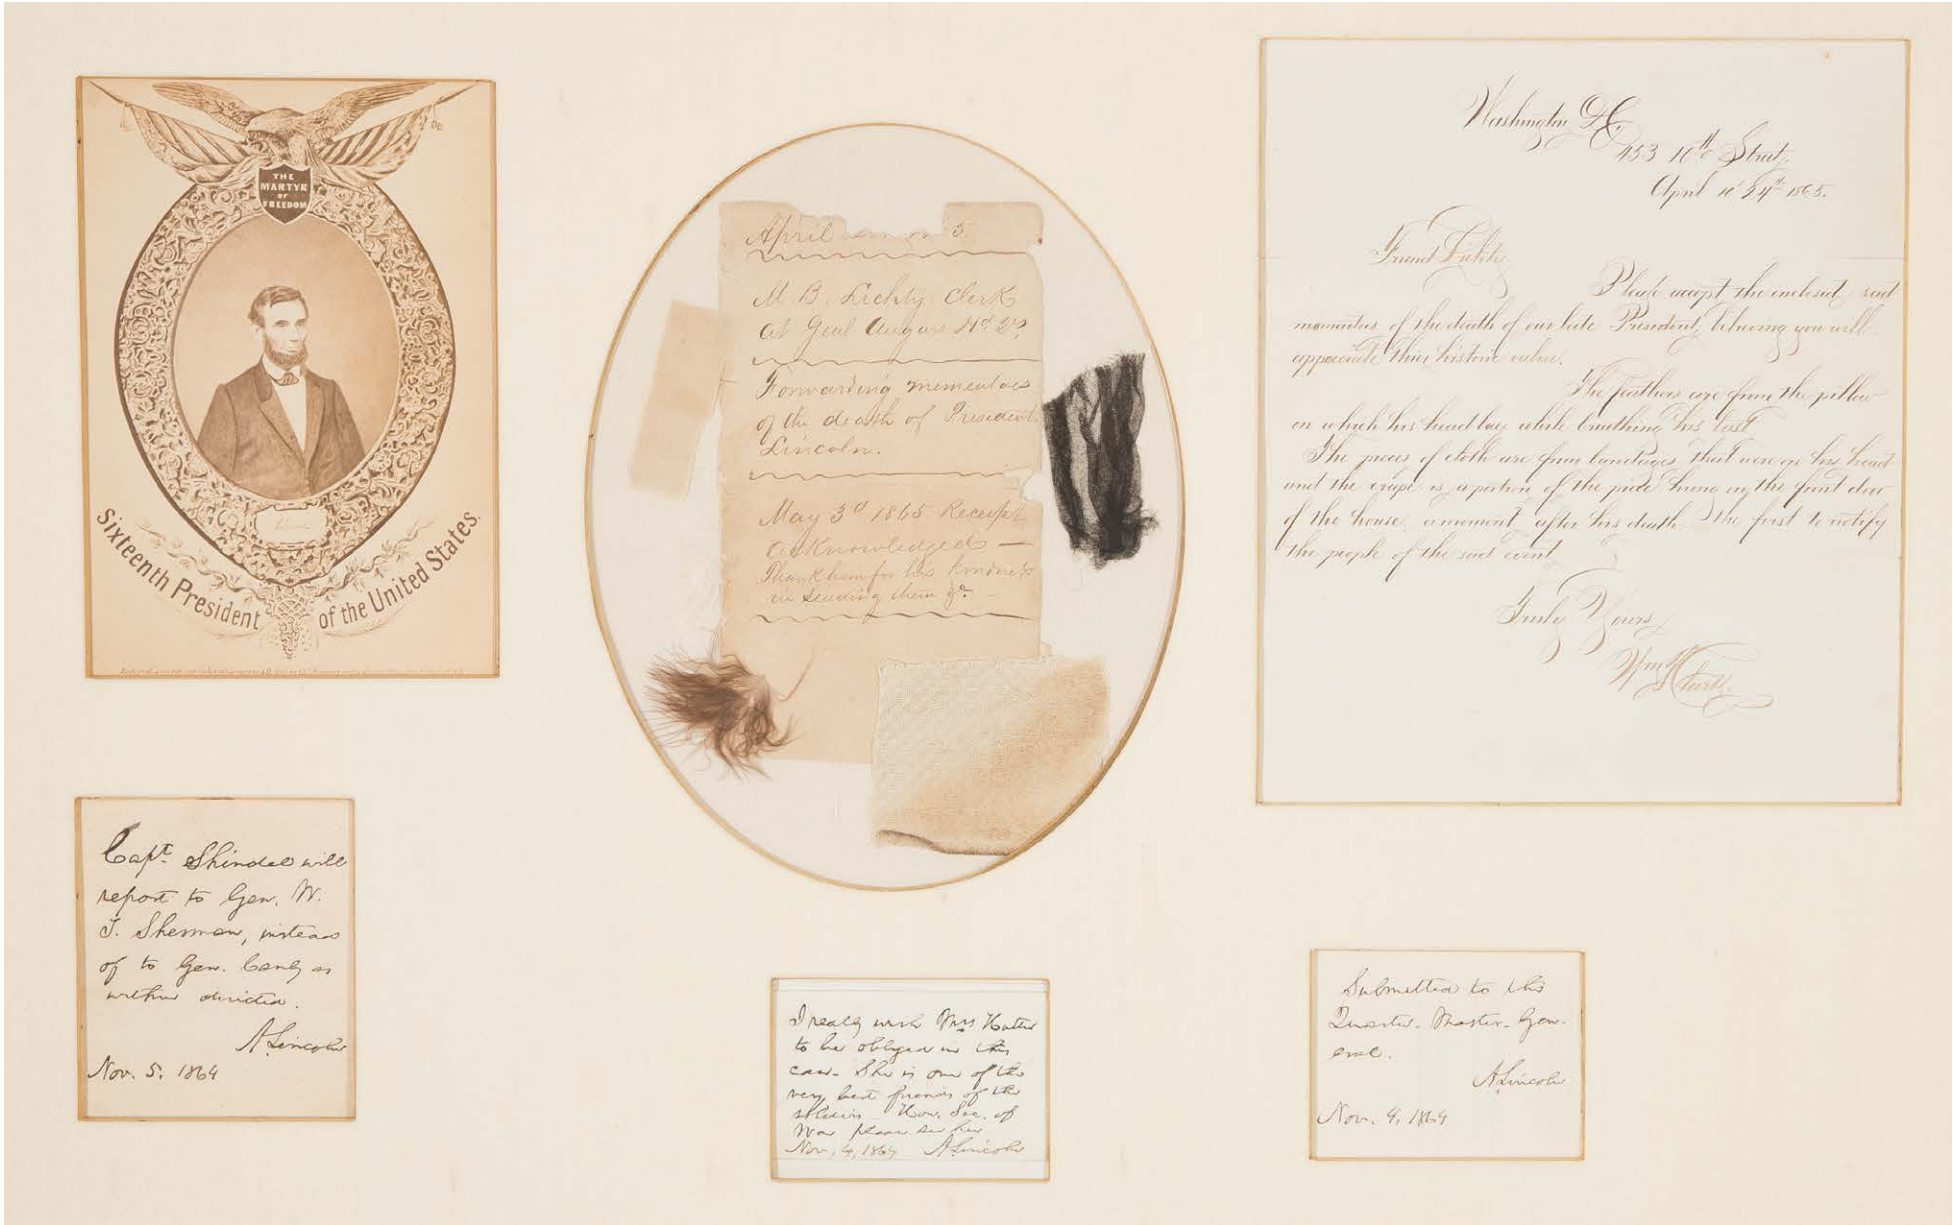 THE
MARTYR
OF
FREEDOM
Sixteenth President of the United States.
April 5.
M. B. Lichty Clerk
at Genl Augurs Hd Qrs
Forwarding mementoes
of the death of President
Lincoln.
May 3d 1865 Receipt
acknowledged —
Thank him for his kindness
in sending them &c.
Washington D.C.
453 10th Street,
April 24th 1865.
Friend
Please accept the enclosed sad
mementos of the death of our late President, believing you will
appreciate their historic value.
The feathers are from the pillow
on which his head lay while breathing his last
The pieces of cloth are from bandages that were on his head
and the crape is a portion of the piece hung on the front door
of the house a moment after his death. The first to notify
the people of the sad event
Truly Yours
Wm Clark
Capt. Shindel will
report to Gen. W.
T. Sherman, instead
of to Gen. Canby as
within directed.
A. Lincoln
Nov. 5. 1864
I really wish Mrs
to be obliged in this
case. She is one of the
very best friends of the
soldiers. Hon. Sec. of
War please see her
Nov. 4, 1864 A. Lincoln
Submitted to the
Quarter-Master-Gen-
eral.
A. Lincoln
Nov. 4, 1864